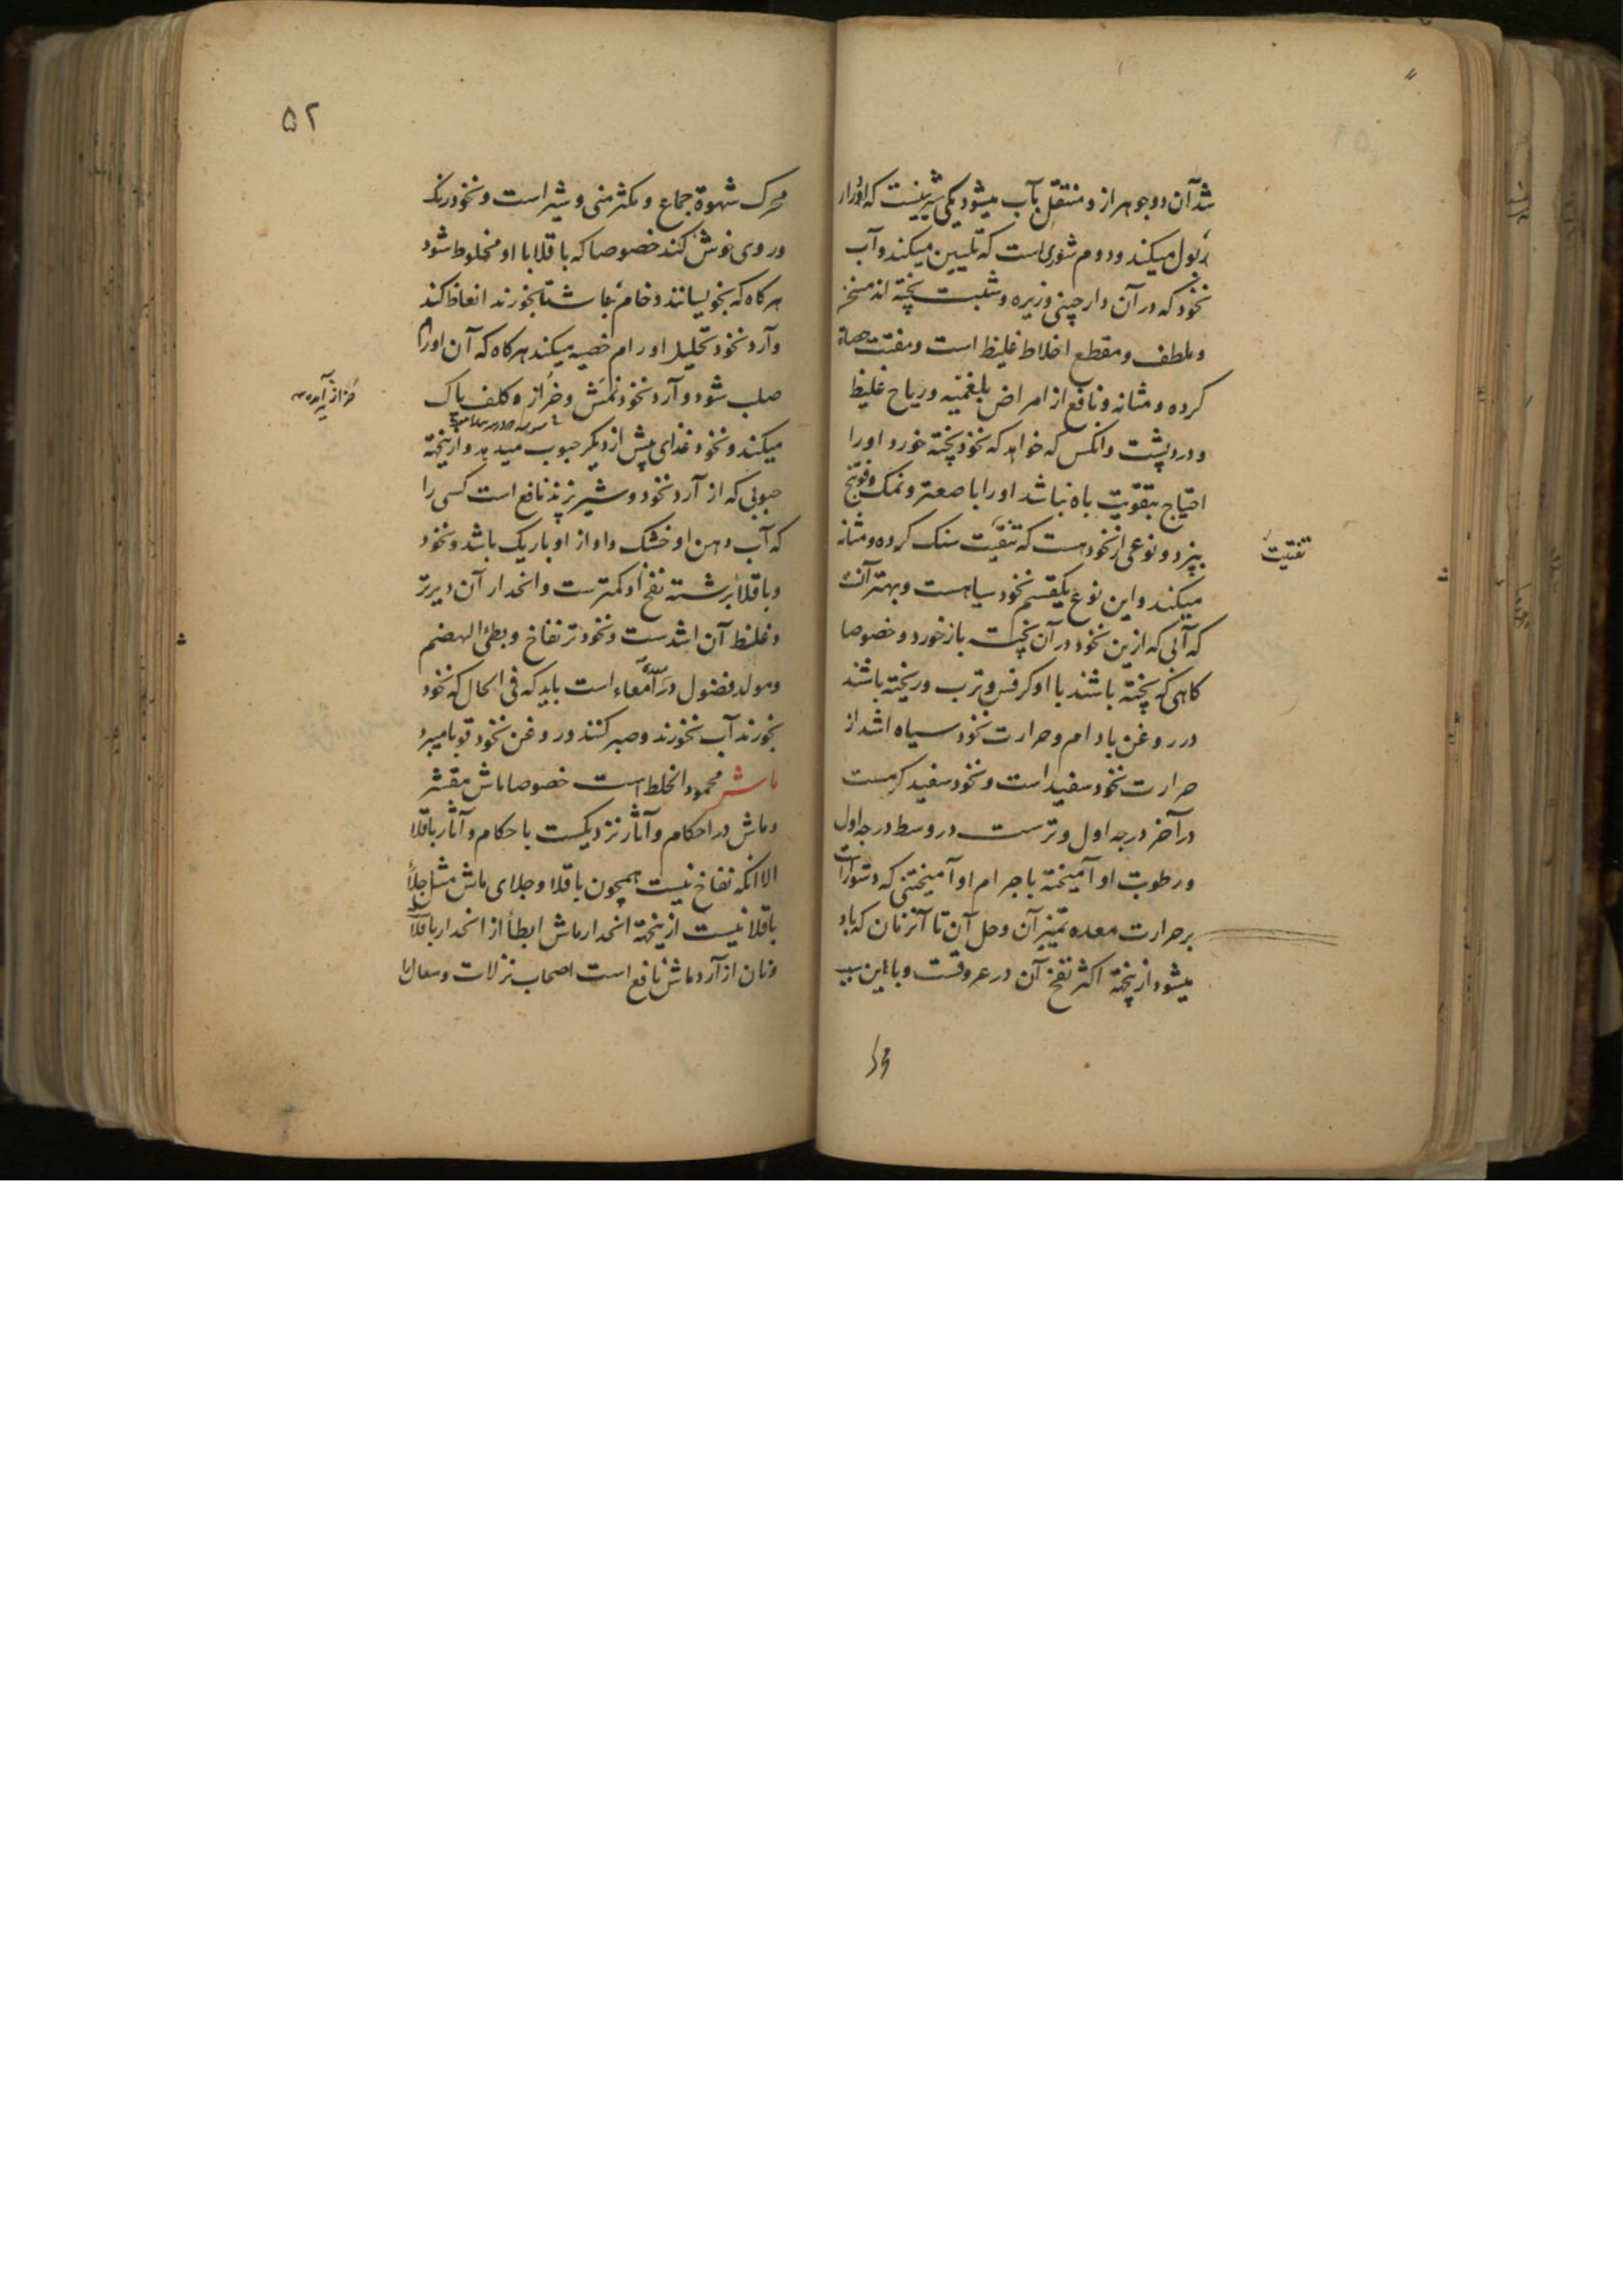 شد آن دو جوهر ازو منتقل بآب میشود یکی شیرینیست که ادرار
بول میکند و دوم شوری است که تلیین میکند و آب
نخود که در آن دارچینی و زیره و شبت پخته اند مسخن
و ملطف و مقطع اخلاط غلیظ است و مفتت حصاة
کرده و مثانه و نافع از امراض بلغمیّه و ریاح غلیظ
و درد پشت و انکس که خواهد که نخود پخته خورد و اورا
احتیاج بتقویت باه نباشد اورا با صعتر و نمک و فوتنج
بپزد و نوعی از نخود هست که تفتیت سنک کرده و مثانه
تفتیت
میکند و این نوع یکقسم نخود سیاهست و بهتر آنست
که آبی که ازین نخود در آن پخت باز خورد و خصوصا
کاهی که پخته باشند با او کرفس و ترب و ریخته باشند
در روغن بادام و حرارت نخود سیاه اشد از
حرارت نخود سفید است و نخود سفید کرمست
در آخر درجه اول و ترست در وسط درجه اول
و رطوبت او آمیخته با جرام او آمیختنی که دشوار است
بر حرارت معده تمییز آن و حل آن تا آنزمان که باد
میشود ازینجهة اکثر نفخ آن در عروقست و باین سبب
محرک
۵۲
محرک شهوة جماع و مکثر منی و شیر است و نخود رنک
و روی خوش کند خصوصا که باقلا با او مخلوط شود
هرکاه که بخویسانند و خام بناشتا بخورند انعاظ کند
و آرد نخود تحلیل اورام خصیه میکند هرکاه که آن اورام
صلب شود و آرد نخود نمش و خزاز و کلف پاک
میکند و نخود غذای بیش از دیکر حبوب میدهد و ازینجهة
حبوبی که از آرد نخود و شیر پزند نافع است کسی را
که آب دهن او خشک و اواز او باریک باشد و نخود
و باقلا برشته نفخ او کمترست و انحدار آن دیرتر
و غلظ آن اشدست و نخود تر نفاخ و بطئ الهضم
و مولد فضول در معده و امعاء است باید که فی الحال که نخود
بخورند آب نخورند و صبر کنند و روغن نخود قوبا میبرد
ماش محمود الخلط است خصوصا ماش مقشر
و ماش در احکام و آثار نزدیکست با حکام و آثار باقلا
الا انکه نفاخ نیست همچون باقلا و جلای ماش مثل جلاء
باقلا نیست ازینجهة انحدار ماش ابطأ از انحدار باقلاست
و نان از آرد ماش نافع است اصحاب نزلات و سعال را